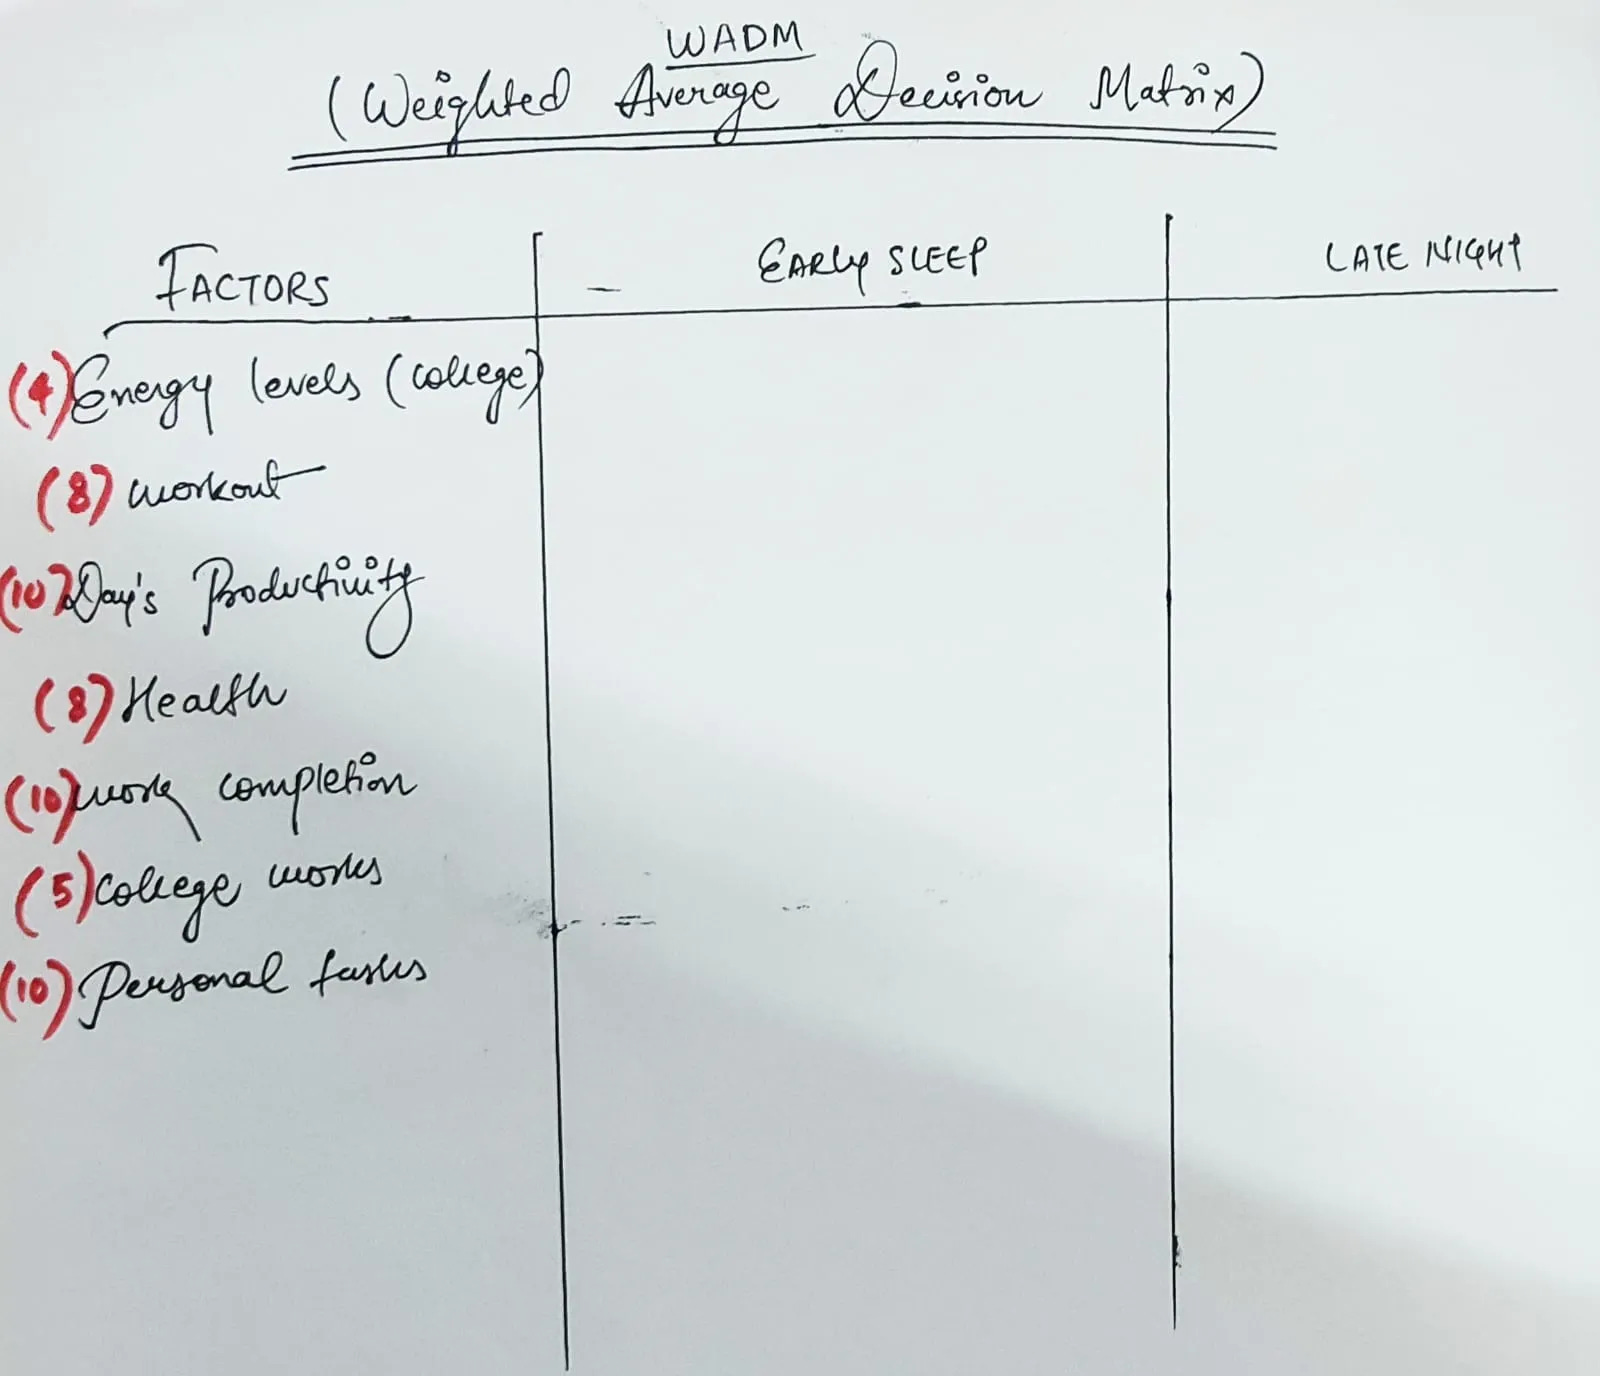 WADM
(Weighted Average Decision Matrix)
FACTORS
EARLY SLEEP
LATE NIGHT
(4) Energy levels (college)
(8) workout
(10) Day's Productivity
(8) Health
(10) work completion
(5) college works
(10) Personal tasks